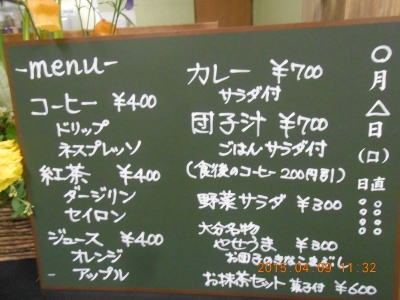 -menu-
コーヒー ¥400
ドリップ
ネスプレッソ
紅茶 ¥400
ダージリン
セイロン
ジュース ¥400
オレンジ
アップル
カレー ¥700
サラダ付
団子汁 ¥700
ごはん サラダ付
(食後のコーヒー 200円引)
野菜サラダ ¥300
大分名物
やせうま ¥300
お団子のきなこまぶし
お抹茶セット 菓子付 ¥600
○月△日(口)
日直
2015.04.09 11:32